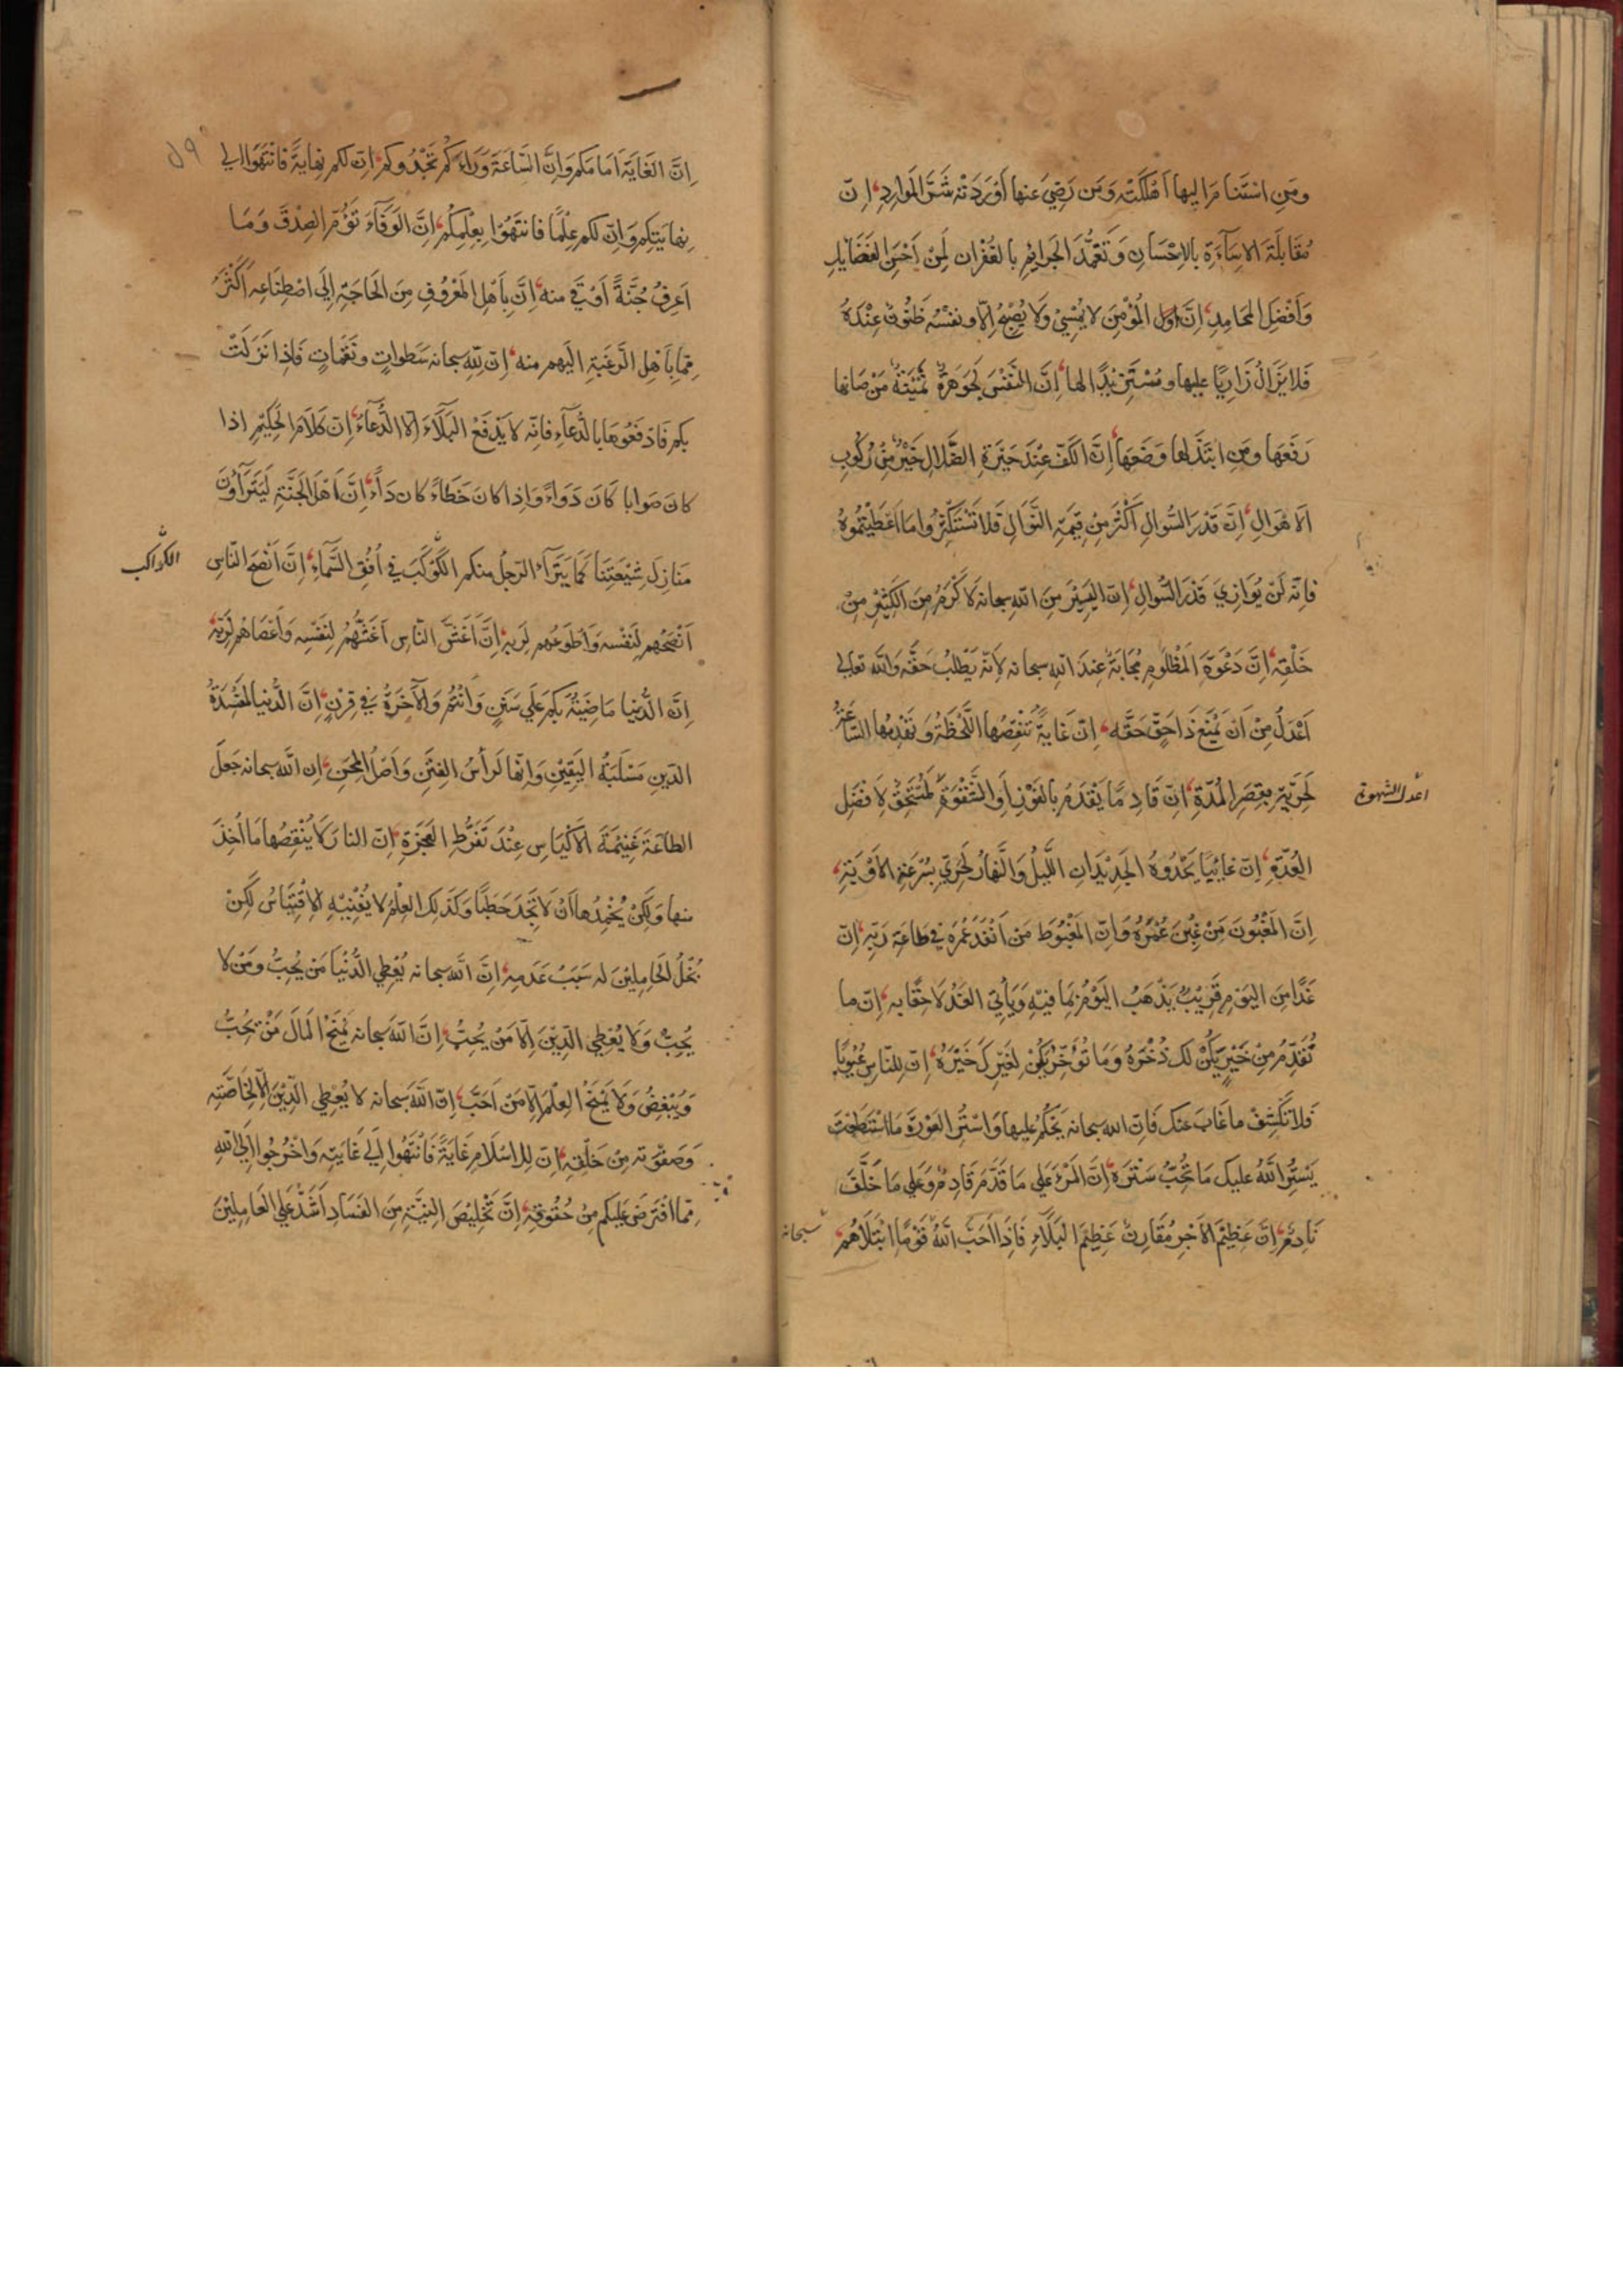 ومَنِ اسْتَنامَ اِليها اَهْلَكَتْه وَمَن رَضِيَ عنها اَوْرَدَتْه شَرَّ المَوارِدِ اِنّ
مُقابَلَةَ الاِسآءَةِ بالاِحْسانِ وَتَغَمُّدَ الجَرائِمِ بالغُفْرانِ لَمِنْ اَحْسَنِ الفَضَايِلِ
وَاَفْضَلِ المَحامِدِ اِنَّ المُؤْمِنَ لا يُمْسِيْ وَلا يُصْبِحُ اِلّا ونفْسُه ظَنُوْنٌ عِنْدَهُ
فَلا يَزَالُ زَارِيًا عليها ومُسْتَزِيْدًا لها اِنَّ النَّفْسَ لَجَوْهَرَةٌ ثَمِيْنَةٌ مَنْ صَانها
رَفَعَها ومَنِ ابْتَذَلها وَضَعَها اِنَّ الكَفَّ عِنْدَ حَيْرَةِ الضَّلالِ خَيْرٌ مِنْ رُكُوبِ
الاَهْوالِ اِنَّ قَدْرَ السُّوالِ اَكْثَرُ مِنْ قِيْمَةِ النَّوَالِ فَلا تَسْتَكْثِرُوا ما اَعْطَيْتُمُوهُ
فاِنّه لَنْ يُوَازِيَ قَدْرَ السُّوالِ اِنّ اليَسِيْرَ مِنَ اللهِ سبحانه لَاَكْرَمُ مِنَ الكَثِيْرِ مِنْ
خَلْقِه اِنَّ دَعْوَةَ المَظْلُومِ مُجَابَةٌ عِندَ الله سبحانه لِاَنّه يَطْلُبُ حَقَّه وَاللّه تعالى
اَعْدَلُ مِنْ اَنْ يَمْنَعَ ذَا حَقٍّ حَقَّه اِنّ غايةً تَنْقُصُها اللَّحْظَةُ وَتَهْدِمُها السّاعَةُ
لَحَرِيّةٌ بِقِصَرِ المُدّةِ اِنّ قَادِمًا يَقْدَمُ بِالفَوْزِ اَوِ الشَّقْوَةِ لَمُسْتَحِقٌّ لِاَفضَلِ
العُدّةِ اِنّ غائِبًا يَحْدُوهُ الجَدِيْدَانِ اللَّيلُ وَالنَّهارُ لَحَرِيٌّ بِسُرْعَةِ الاَوْبَةِ
اِنَّ المَغْبُونَ مَنْ غُبِنَ عُمْرَهُ وَاِنّ المَغْبُوطَ مَنْ اَنْفَدَ عُمْرَهُ فِي طاعَة رَبّه اِنّ
غَدًا مِنَ اليَومِ قَرِيْبٌ يَذْهَبُ اليَوْمُ بِمَا فِيْهِ وَيَأتِي الغَدُ لاحِقًا به اِنّ ما
تُقَدِّمْ مِنْ خَيْرٍ يَكُنْ لك ذُخْرُهُ وَمَا تُؤَخِّرْ يَكُنْ لِغَيْرِكَ خَيْرُهُ اِنّ لِلنّاسِ عُيُوبًا
فَلا تَكْشِفْ ما غَابَ عنك فَاِنّ الله سبحانه يَحْكُمُ عليها وَاسْتُرِ العَوْرَةَ مَا اسْتَطَعْتَ
يَسْتُرِ اللّهُ عليك مَا تُحِبُّ سَتْرَه اِنَّ المَرْءَ عَلي مَا قَدَّمَ قَادِمٌ وَعَلي مَا خَلَّفَ
نَادِمٌ اِنَّ عَظِيْمَ الاَجْرِ مُقَارِنٌ عَظِيْمَ البَلَاءِ فَاِذَا اَحَبَّ اللّهُ قَوْمًا ابْتَلَاهُمْ
سبحانه
اِنَّ الغَايَةَ اَمامَكم وَاِنَّ السَّاعَةَ وَرَاءَكُم تَحْدُوكم اِنّ لكم نِهايةً فانْتَهُوا الي
نِهايَتِكم وَاِنّ لكم عِلْمًا فانتَهُوْا بِعِلْمِكُمْ اِنَّ الوَفَآءَ تَوْءَمُ الصِدْقِ وَمَا
اَعرِفُ جُنَّةً اَوْقَي منه اِنَّ بِاَهْلِ المَعْرُوفِ مِنَ الحَاجَةِ اِلَي اصْطِناعِه اَكْثَرَ
مِمّا بِاَهْلِ الرَّغبَةِ اليهم منه اِنّ لِلّهِ سبحانه سَطواتٍ ونَقَماتٍ فَاِذا نَزَلَتْ
بكم فَادفَعُوهَا بالدُّعآءِ فانّه لا يَدْفَعُ البَلَآءَ اِلّا الدُّعآءُ اِنّ كَلَامَ الحَكِيْمِ اذا
كانَ صَوابا كَانَ دَوَاءً وَاِذا كانَ خَطَاءً كان دَاءً اِنَّ اَهْلَ الجَنَّةِ لَيَتَرَاَوْنَ
مَنازِلَ شِيْعَتِنَا كَمَا يَتَرَاءَ الرّجلُ منكم الكَوْكَبَ في اُفُقِ السَّمآءِ اِنَّ اَنْصَحَ النّاسِ
الكواكب
اَنْصَحُهم لِنَفْسه وَاَطوَعُهم لِرَبه اِنَّ اَغَشَّ النّاسِ اَغَشُّهُمْ لِنَفْسِه وَاَعْصَاهُم لِرَبّه
اِنَّ الدُّنيا مَاضِيَةٌ بكم عَلَي سَنَنٍ وَاَنْتُمْ وَالآخِرَةُ فِي قَرَنٍ اِنَّ الدُّنيا لَمَفْسَدَةُ
الدّينِ مَسْلَبَةُ اليَقِيْنِ وَاِنّها لَرَاْسُ الفِتَنِ وَاَصْلُ المِحَنِ اِن اللّهَ سبحانه جَعَلَ
الطاعَةَ غَنِيْمَةَ الاَكْيَاسِ عِنْدَ تَفْرِيْطِ العَجَزَةِ اِنّ النارَ لَا يُنْقِصُها مَا اُخِذَ
منها وَلكِنْ يُخْمِدُها اَنْ لَا تَجِدَ حَطَبًا وَكَذلك العِلْمُ لا يُفْنِيْهِ الاِقْتِبَاسُ لٰكِنْ
بُخْلُ الحَامِلِيْنَ له سَبَبُ عَدَمِه اِنَّ اللّه سبحانه يُعْطِي الدُّنْيَا مَن يُحِبُّ ومَنْ لا
يُحِبُّ وَلَا يُعْطِي الدِّيْنَ اِلّا مَنْ يُحِبُّ اِنَّ اللّهَ سبحانه يَمْنَحُ المَالَ مَنْ يُحِبُّ
وَيُبْغِضُ وَلَا يَمْنَحُ العِلْمَ اِلّا مَنْ اَحَبَّ اِنّ اللّهَ سبحانه لا يُعْطِي الدِّيْنَ اِلّا لِخَاصَّتِه
وَصَفْوَته مِنْ خَلْقِه اِنّ لِلاسْلَامِ غَايَةً فَانْتَهُوا اِلَي غَايَتِه وَاخْرُجُوا اِلَي اللهِ
مِمّا افْتَرَضَ عَلَيكم مِنْ حُقُوقِه اِنَّ تَخْلِيْصَ النِيَّةِ مِنَ الفَسَادِ اَشَدُّ عَلَي العَامِلِيْنَ